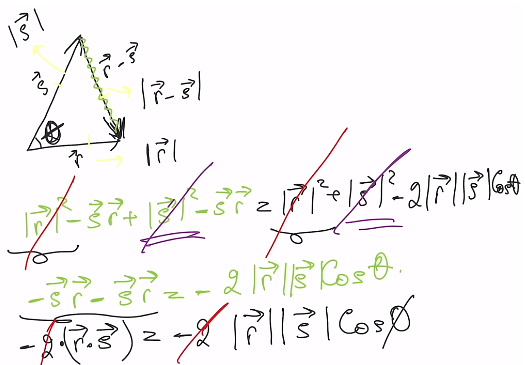 |s⃗|
s⃗ r⃗-s⃗
|r⃗-s⃗|
θ
r⃗ |r⃗|
|r⃗|² - s⃗r⃗ + |s⃗|² - s⃗r⃗ = |r⃗|² + |s⃗|² - 2|r⃗||s⃗|Cosθ
-s⃗r⃗ - s⃗r⃗ = -2|r⃗||s⃗|Cosθ.
-2·(r⃗·s⃗) = -2 |r⃗||s⃗|Cosθ